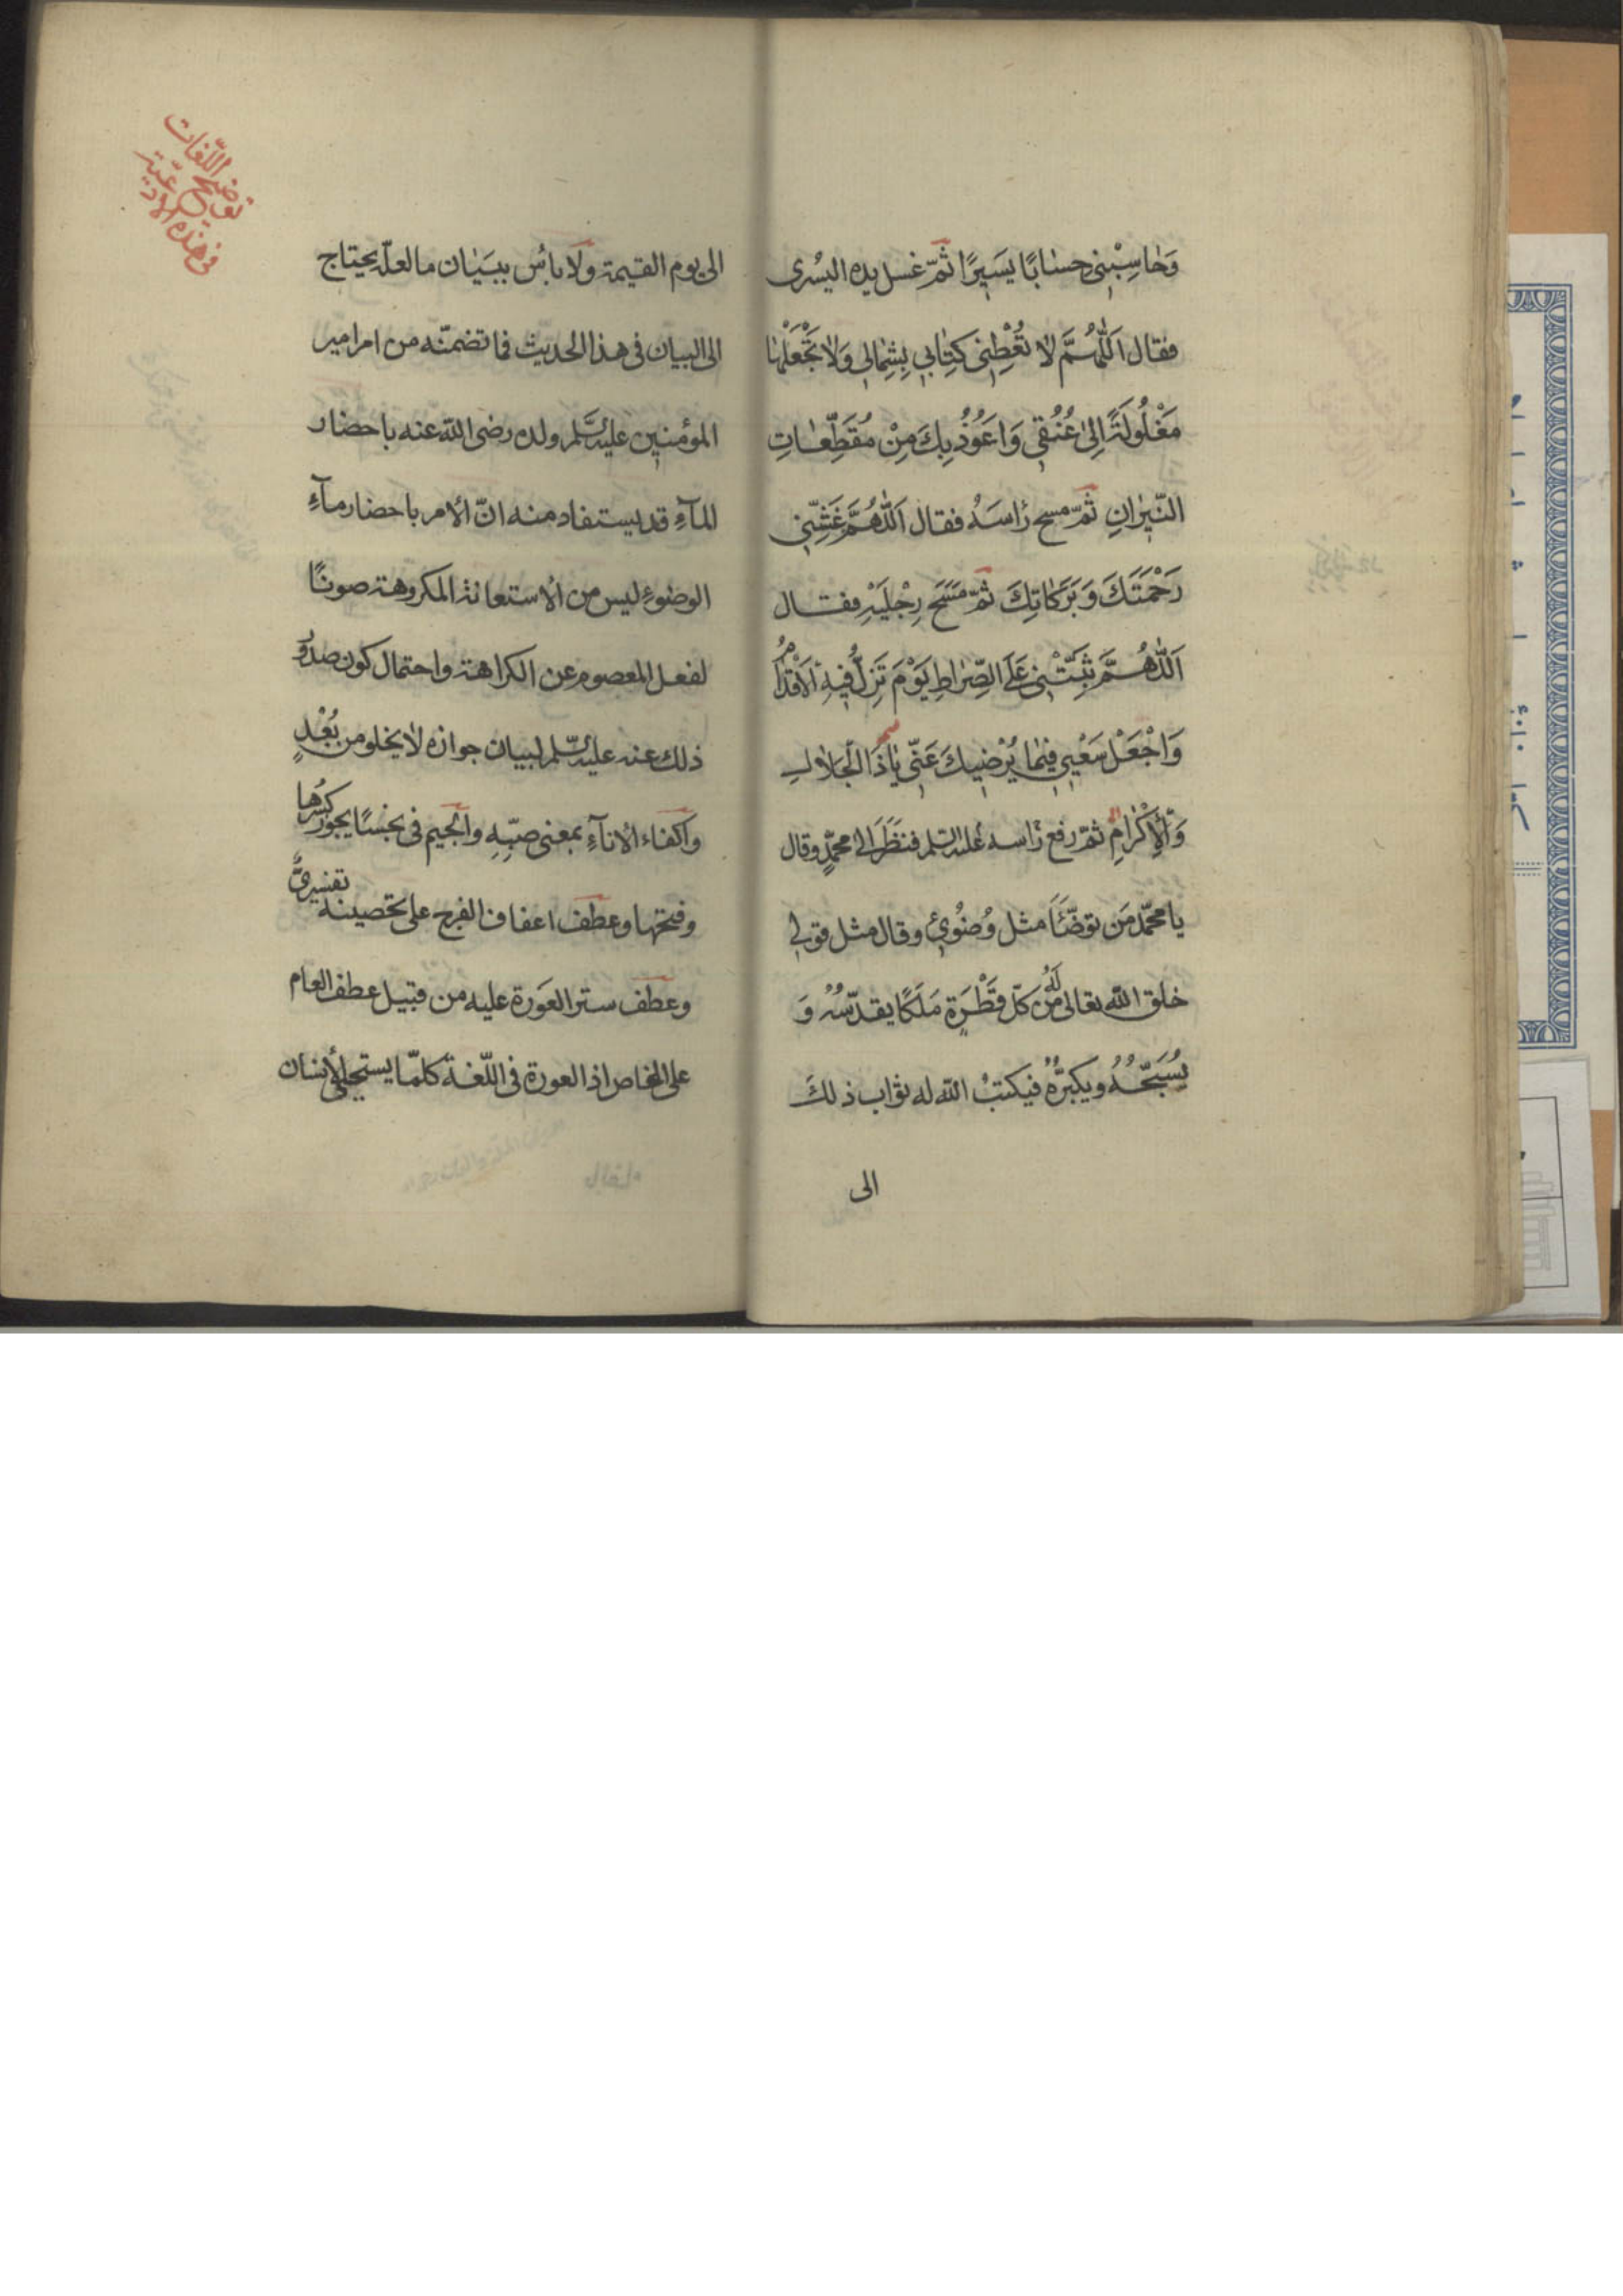 وَحٰاسِبْنِي حِسٰابًا يَسِيرًا ثمّ غسل يده اليُسْرى
فقال اَللّٰهُمَّ لاٰ تُعْطِنِي كِتٰابِي بِشِمٰالِي وَلاٰ تَجْعَلْهٰا
مَغْلُولَةً اِلىٰ عُنُقِي وَاَعُوذُ بِكَ مِنْ مُقَطِّعٰاتِ
النّيرٰانِ ثمّ مسح رٰاسَهُ فقال اَللّٰهُمَّ غَشِّنِي
رَحْمَتَكَ وَبَرَكٰاتِكَ ثمّ مَسَحَ رِجْلَيْهِ فقال
اَللّٰهُمَّ ثَبِّتْنِي عَلَى الصِّرٰاطِ يَوْمَ تَزِلُّ فِيهِ اْلاَقْدٰامُ
وَاجْعَلْ سَعْيِي فِيمٰا يُرْضِيكَ عَنّي يٰا ذَا الْجَلاٰلِ
وَاْلاِكْرٰامِ ثمّ رفع رٰاسه عليه السّلم فنظَرَ الى محمّدٍ وقال
يا محمّد مَن توضّأَ مثل وُضُوئي وقال مثل قولي
خلق الله تعالى لَهُ من كلّ قَطْرَةٍ مَلَكًا يقدّسُهُ وَ
يُسَبّحُهُ ويكبّرُهُ فيكتبُ الله له ثواب ذلكَ
الى
توضيح اللّغات
في هذه الادعية
الى يوم القيمة ولا باسُ ببَيٰان ما لعلّه يحتاج
الى البيان في هذا الحديث فما تضمنّه من امر امير
المؤمنين عليه السّلم ولده رضى الله عنه باحضار
المآءِ قد يستفاد منه انّ الأمر باحضار مآءِ
الوضوءِ ليس من الأستعانة المكروهة صونًا
لفعل المعصوم عن الكراهة واحتمال كون صدُور
ذلك عنه عليه السّلم لبيان جوازه لا يخلو من بُعْدٍ
واكفاء الأناءِ بمعنى صبّه والجيم في نجسًا يجوز كسْرها
وفتحها وعطف اعفاف الفرج على تحصينه تفسيريٌّ
وعطف ستر العَورة عليه من قبيل عطف العام
على الخاص اذ العورة في اللّغة كلمّا يستحيي الأنسان